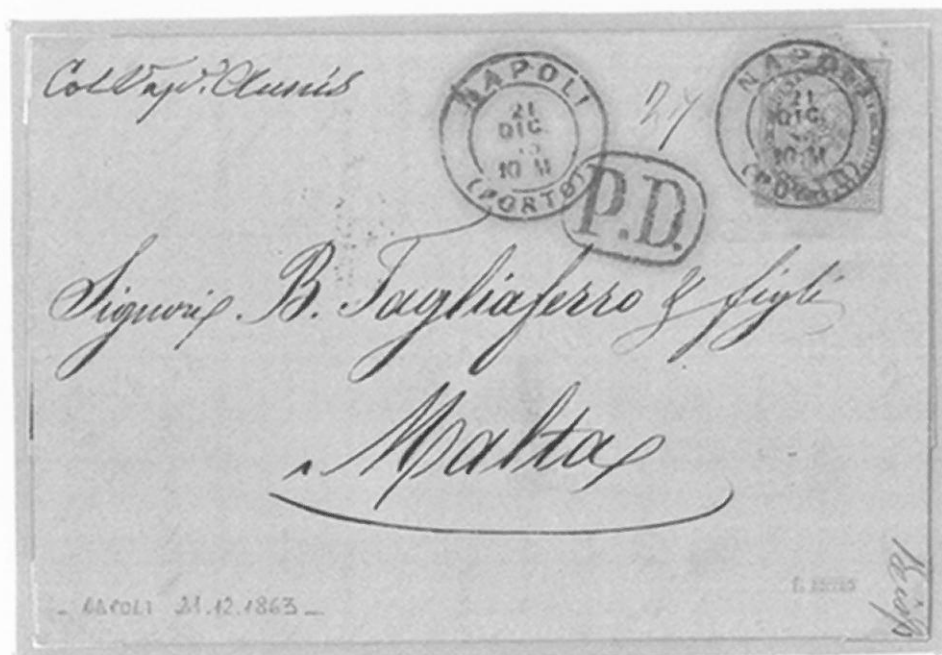 Col Vap.
NAPOLI
21
DIC.
10 M
(PORTO)
NAPOLI
21
DIC.
10 M
P.D.
Signori B. Tagliaferro & figli
Malta
NAPOLI 21.12.1863